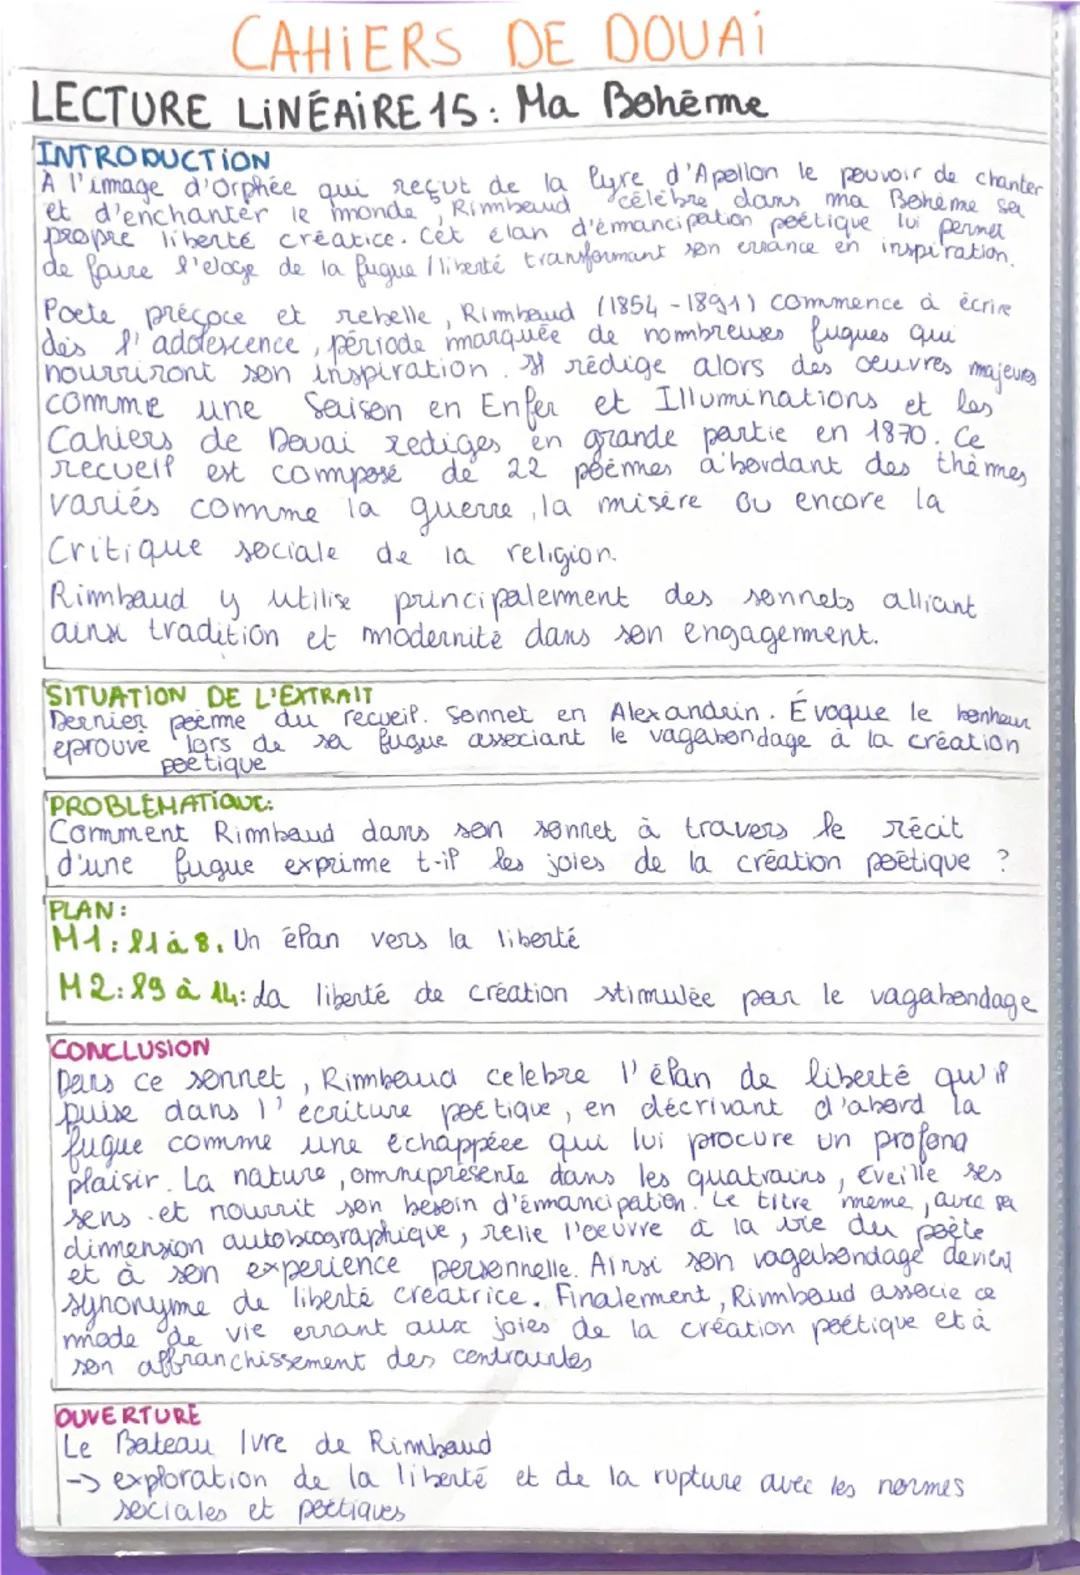 CAHiERS DE DOUAi
LECTURE LiNÉAiRE 15 : Ma Bohême
INTRODUCTiON
A l'image d'Orphée qui reçut de la lyre d'Apollon le pouvoir de chanter
et d'enchanter le monde, Rimbaud célèbre dans ma Bohème sa
propre liberté créatice. Cet élan d'émancipation poétique lui permet
de faire l'eloge de la fugue / liberté transformant son errance en inspiration.
Poète précoce et rebelle, Rimbaud (1854 - 1891) commence à écrire
dès l'adolescence, période marquée de nombreuses fugues qui
nourriront son inspiration. Il rédige alors des œuvres majeures
comme une Saison en Enfer et Illuminations et les
Cahiers de Douai rediges en grande partie en 1870. Ce
recueil est composé de 22 poèmes abordant des thèmes
variés comme la guerre, la misère ou encore la
Critique sociale de la religion.
Rimbaud y utilise principalement des sonnets alliant
ainsi tradition et modernité dans son engagement.
SITUATION DE L'EXTRAIT
Dernier poème du recueil. Sonnet en Alexandrin. Évoque le bonheur
eprouvé lors de sa fugue associant le vagabondage à la création
poétique
PROBLÉMATiQUE:
Comment Rimbaud dans son sonnet à travers le récit
d'une fugue exprime t-il les joies de la création poétique ?
PLAN :
M1 : l1 à 8. Un élan vers la liberté
M2 : l9 à 14 : La liberté de création stimulée par le vagabondage
CONCLUSION
Dans ce sonnet, Rimbaud celebre l'élan de liberté qu'il
puise dans l'écriture poétique, en décrivant d'abord la
fugue comme une échappée qui lui procure un profond
plaisir. La nature, omniprésente dans les quatrains, éveille ses
sens et nourrit son besoin d'émancipation. Le titre même, avec sa
dimension autobiographique, relie l'oeuvre à la vie du poète
et à son expérience personnelle. Ainsi son vagabondage devient
synonyme de liberté créatrice. Finalement, Rimbaud associe ce
mode de vie errant aux joies de la création poétique et à
son affranchissement des contraintes
OUVERTURE
Le Bateau Ivre de Rimbaud
-> exploration de la liberté et de la rupture avec les normes
sociales et poétiques